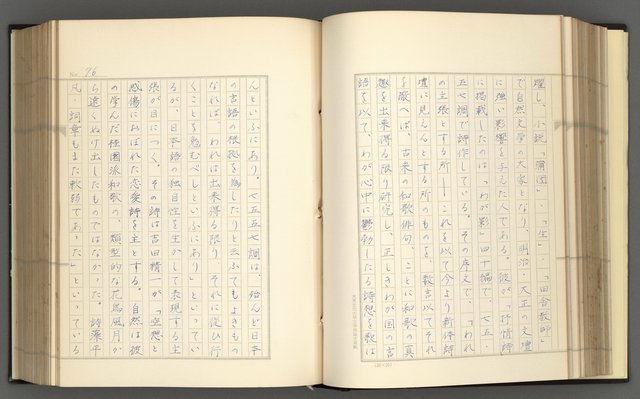 躍し、小説「蒲団」・「生」・「田舎教師」
で自然文学の大家となり、明治・大正の文壇
に強い影響を与えた人である。彼が「抒情詩」
に掲載したのは「わが影」四十編で、七五・
五七調で詩作している。その序文で、「われ
の主張とする所――これを以て今より新体詩
壇に見えんとする所のものを、数言以てそれ
を蔽へば、古来の和歌俳句、ことに和歌の真
趣を出来得る限り研究し、正しきわが国の言
語を以て、わが心中に鬱勃したる詩想を歌は
No. 76
んといふにあり。七五五七調は、殆んど日本
の言語の根拠を為したりと云ふてもよきもの
なれば、われは出来得る限り、それに従ひ行
くことを勉むべしといふにあり」といってい
るが、日本語の独自性を生かして表現する主
張が目につく。その詩は吉田精一が「空想と
感傷におぼれた恋愛詩を主とする。自然は彼
の学んだ桂園派和歌の、類型的な花鳥風月か
ら遠くぬけ出したものではなかった。詩藻平
凡、詞章もまた軟弱であった」といっている